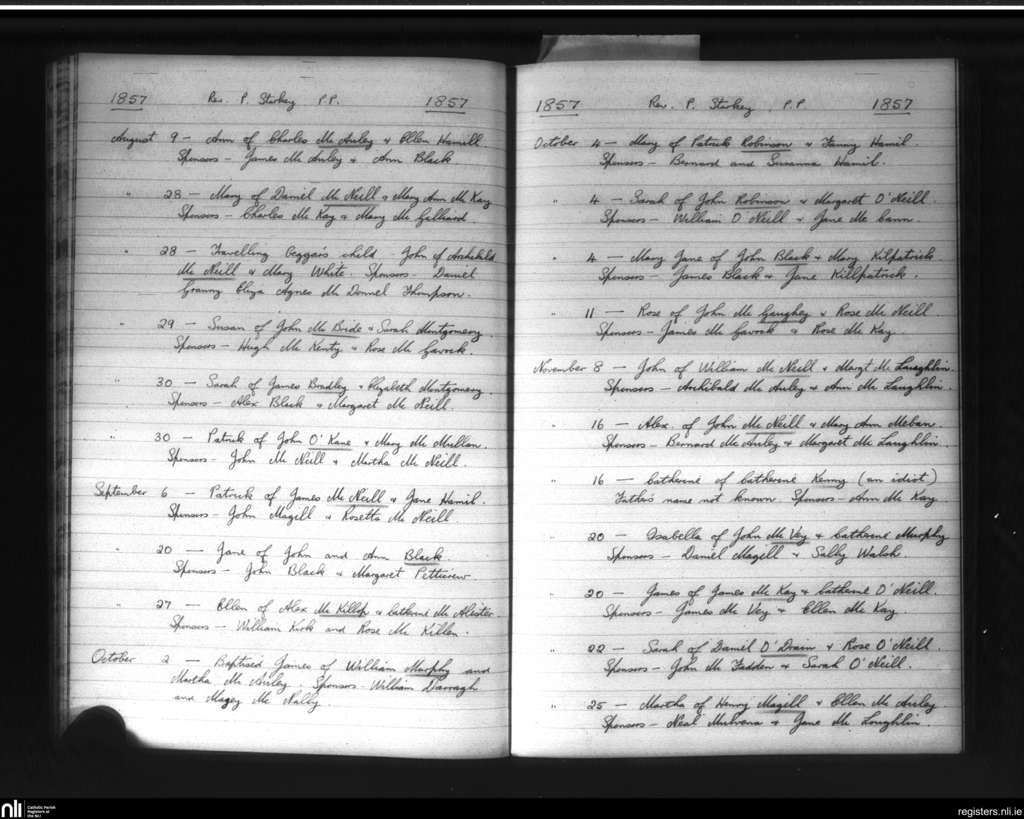 1857 Rev. P. Starkey P.P. 1857
August 9 — Ann of Charles Mc Auley & Ellen Hamill
Sponsors — James Mc Auley & Ann Black
" 28 — Mary of Daniel Mc Neill & Mary Ann Mc Kay
Sponsors — Charles Mc Kay & Mary Mc
" 28 — Travelling beggar's child John of Archibald
Mc Neill & Mary White. Sponsors Daniel
Granny Eliza Agnes Mc Donnel Thompson.
" 29 — Susan of John Mc Bride & Sarah Montgomery
Sponsors — Hugh Mc Kenty & Rose Mc Gavock.
" 30 — Sarah of James Bradley & Elizabeth Montgomery
Sponsors — Alex Black & Margaret Mc Neill.
" 30 — Patrick of John O'Kane & Mary Mc Mullan.
Sponsors — John Mc Neill & Martha Mc Neill.
September 6 — Patrick of James Mc Neill & Jane Hamil.
Sponsors — John Magill & Rosetta Mc Neill
" 20 — Jane of John and Ann Black.
Sponsors — John Black & Margaret Petticrew.
" 27 — Ellen of Alex Mc Killop & Catherine Mc Alister.
Sponsors — William Kirk and Rose Mc Killen.
October 2 — Baptised James of William Murphy and
Martha Mc Auley. Sponsors — William Darragh
and Magey Mc Nally.
1857 Rev. P. Starkey P.P. 1857
October 4 — Mary of Patrick Robinson & Fanny Hamil.
Sponsors — Bernard and Susanna Hamil.
" 4 — Sarah of John Robinson & Margaret O'Neill.
Sponsors — William O'Neill & Jane Mc Cann.
" 4 — Mary Jane of John Black & Mary Kilpatrick.
Sponsors — James Black & Jane Killpatrick.
" 11 — Rose of John Mc Gaughey & Rose Mc Neill.
Sponsors — James Mc Gavock & Rose Mc Kay.
November 8 — John of William Mc Neill & Margt Mc Laughlin.
Sponsors — Archibald Mc Auley & Ann Mc Laughlin.
" 16 — Alex. of John Mc Neill & Mary Ann Meban.
Sponsors — Bernard Mc Auley & Margaret Mc Laughlin.
" 16 — Catherine of Catherine Kenny (an idiot)
Father's name not known Sponsors — Ann Mc Kay
" 20 — Isabella of John Mc Vey & Catherine Murphy
Sponsors — Daniel Magill & Sally Walsh
" 20 — James of James Mc Kay & Catherine O'Neill.
Sponsors — James Mc Vey & Ellen Mc Kay
" 22 — Sarah of Daniel O'Drain & Rose O'Neill.
Sponsors — John Mc Fadden & Sarah O'Neill.
" 25 — Martha of Henry Magill & Ellen Mc Auley
Sponsors — Neal Mulvena & Jane Mc Loughlin.
nli Catholic Parish
Registers at
the NLI
registers.nli.ie